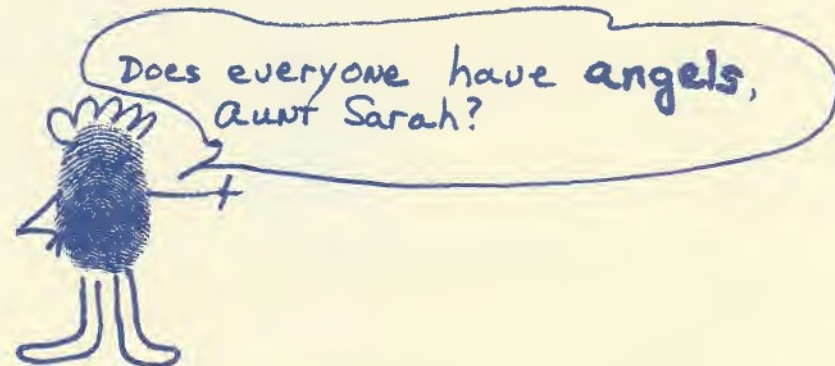 Does everyone have angels,
aunt Sarah?